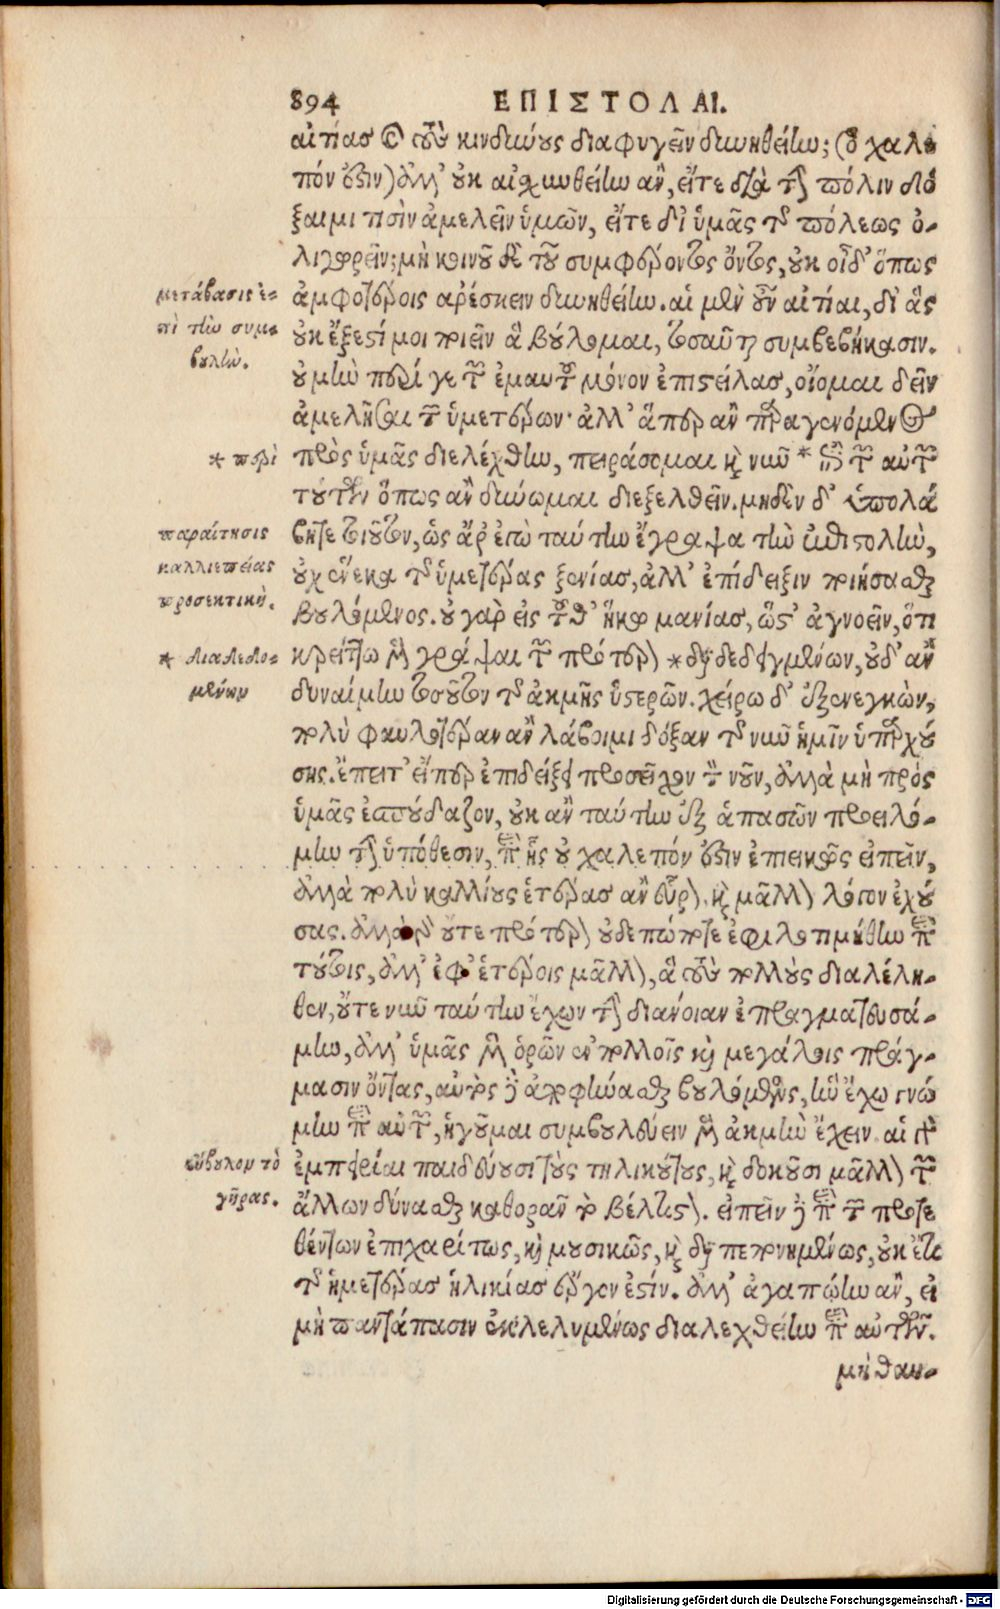 894 ΕΠΙΣΤΟΛΑΙ.
αἰτίας καὶ τοὺς κινδύνους διαφυγεῖν δυνηθείην; (ὃ χαλε
πόν ἐστιν) ἀλλ' οὐκ αἰσχυνθείην ἄν, εἴτε διὰ τὴν πόλιν δό
ξαιμι τισὶν ἀμελεῖν ὑμῶν, εἴτε δι' ὑμᾶς τῆς πόλεως ὀ-
λιγωρεῖν; μὴ κοινοῦ δὲ τοῦ συμφέροντος ὄντος, οὐκ οἶδ' ὅπως
μετάβασις ἐ-
πὶ τὴν συμ-
βουλήν.
ἀμφοτέροις ἀρέσκειν δυνηθείην. αἱ μὲν οὖν αἰτίαι, δι' ἃς
οὐκ ἔξεστί μοι ποιεῖν ἃ βούλομαι, τοσαῦται συμβεβήκασιν.
οὐ μὴν περί γε τῶν ἐμαυτοῦ μόνον ἐπιστείλας, οἴομαι δεῖν
ἀμελῆσαι τῶν ὑμετέρων· ἀλλ' ἅπερ ἂν παραγενόμενος
* περὶ
πρὸς ὑμᾶς διελέχθην, πειράσομαι καὶ νῦν * τῶν αὐτῶν
τούτων ὅπως ἂν δύνωμαι διεξελθεῖν. μηδεὶν δ' ὑπολά
παραίτησις
καλλιεπείας
προσεκτική.
βητε τοιοῦτον, ὡς ἄρ' ἐγὼ ταύτην ἔγραψα τὴν ἐπιστολὴν,
οὐχ ἕνεκα τῆς ὑμετέρας ξενίας, ἀλλ' ἐπίδειξιν ποιήσασθαι
βουλόμενος. οὐ γὰρ εἰς τοῦθ' ἥκω μανίας, ὥστ' ἀγνοεῖν, ὅτι
* διαδεδο-
μένων
κρείττω μὲν γράψαι τῶν πρότερον * διαδεδειγμένων, οὐδ' ἂν
δυναίμην τοσοῦτον τῆς ἀκμῆς ὑστερῶν. χείρω δ' ἐξενεγκὼν,
πολὺ φαυλοτέραν ἂν λάβοιμι δόξαν τῆς νῦν ἡμῖν ὑπαρχού
σης. ἔπειτ' εἴπερ ἐπιδείξει προσεῖχον τὸν νοῦν, ἀλλὰ μὴ πρὸς
ὑμᾶς ἐσπούδαζον, οὐκ ἂν ταύτην ἐξ ἁπασῶν προειλό-
μην τὴν ὑπόθεσιν, περὶ ἧς οὐ χαλεπόν ἐστιν ἐπιεικῶς εἰπεῖν,
ἀλλὰ πολὺ καλλίους ἑτέρας ἂν εὗρον, καὶ μᾶλλον λόγον ἐχού
σας. ἀλλὰ γὰρ οὔτε πρότερον οὐδεπώποτε ἐφιλοτιμήθην περὶ
τούτοις, ἀλλ' ἐφ' ἑτέροις μᾶλλον, ἃ τοὺς πολλοὺς διαλέλη-
θεν, οὔτε νῦν ταύτην ἔχων τὴν διάνοιαν ἐπραγματευσά-
μην, ἀλλ' ὑμᾶς μὲν ὁρῶν ἐν πολλοῖς καὶ μεγάλοις πράγ-
μασιν ὄντας, αὐτὸς δὲ ἀποφήνασθαι βουλόμενος, ἣν ἔχω γνώ
μην περὶ αὐτῶν, ἡγοῦμαι συμβουλεύειν μὲν ἀκμὴν ἔχειν. αἱ γὰρ
εὔβουλον τὸ
γῆρας.
ἐμπειρίαι παιδεύουσι τοὺς τηλικούτους, καὶ δοκοῦσι μᾶλλον τῶν
ἄλλων δύνασθαι καθορᾶν τὸ βέλτιστον. εἰπεῖν δὲ περὶ τῶν προτε
θέντων ἐπιχαρίτως, καὶ μουσικῶς, καὶ διαπεπονημένως, οὐκ ἔτι
τῆς ἡμετέρας ἡλικίας ἔργον ἐστίν. ἀλλ' ἀγαπῴην ἄν, εἰ
μὴ παντάπασιν ἐκλελυμένως διαλεχθείην περὶ αὐτῶν.
μὴ θαυ-
Digitalisierung gefördert durch die Deutsche Forschungsgemeinschaft - DFG